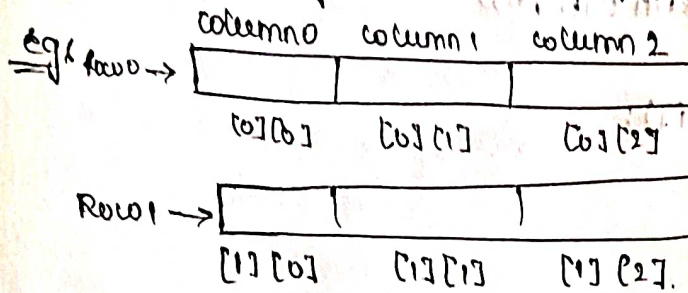 column0 column1 column 2
eg: Row0 →
[0][0] [0][1] [0][2]
Row1 →
[1][0] [1][1] [1][2].